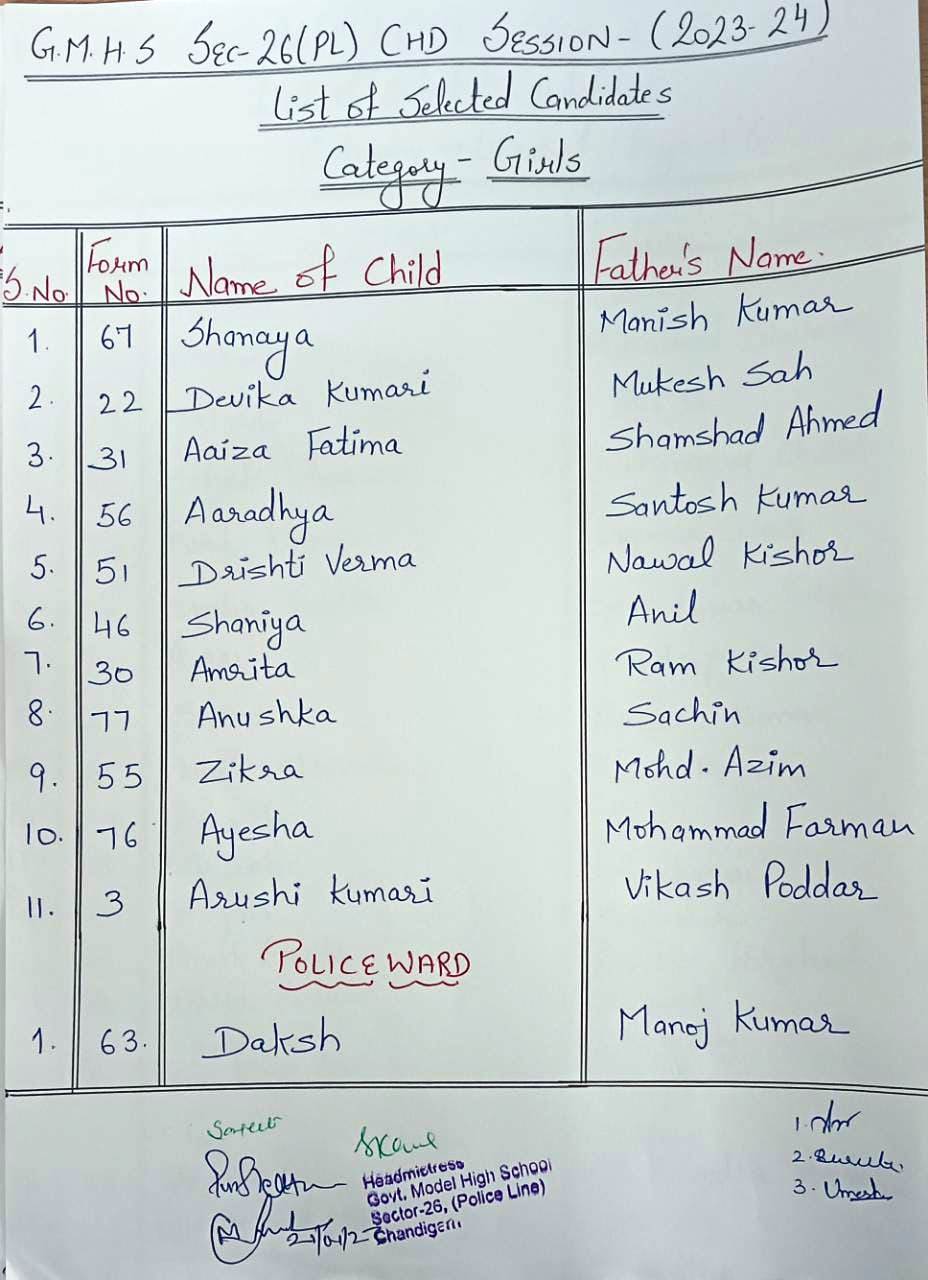 G.M.H.S Sec-26(PL) CHD SESSION-(2023-24)
List of Selected Candidates
Category - Girls
S.No. Form No. Name of Child Father's Name.
1. 67 Shanaya Manish Kumar
2. 22 Devika Kumari Mukesh Sah
3. 31 Aaiza Fatima Shamshad Ahmed
4. 56 Aaradhya Santosh Kumar
5. 51 Drishti Verma Nawal Kishor
6. 46 Shaniya Anil
7. 30 Amrita Ram Kishor
8. 77 Anushka Sachin
9. 55 Zikra Mohd. Azim
10. 76 Ayesha Mohammad Farman
11. 3 Arushi Kumari Vikash Poddar
POLICE WARD
1. 63. Daksh Manoj Kumar
Headmistress
Govt. Model High School
Sector-26, (Police Line)
Chandigarh
1.
2.
3. Umesh